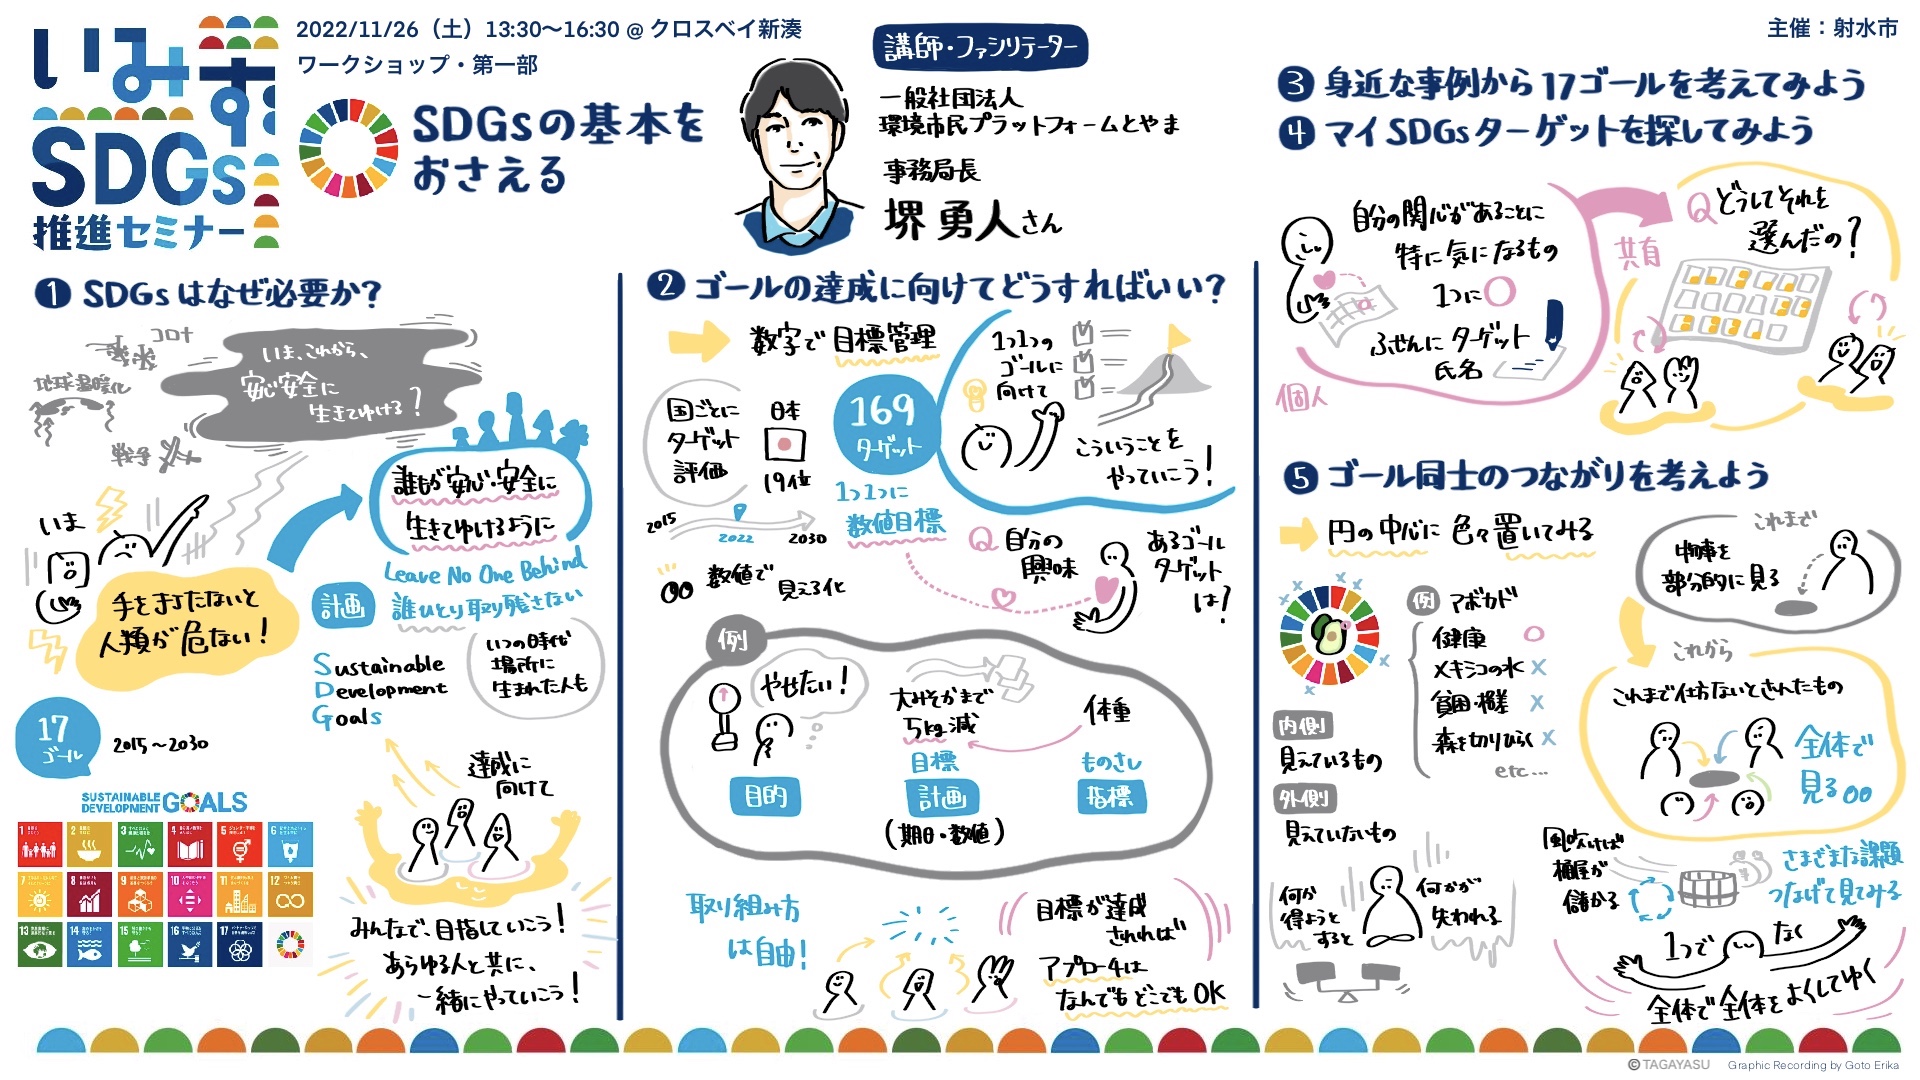 いみず
SDGs
推進セミナー
2022/11/26（土）13:30〜16:30 @ クロスベイ新湊
ワークショップ・第一部
SDGsの基本を
おさえる
講師・ファシリテーター
一般社団法人
環境市民プラットフォームとやま
事務局長
堺 勇人さん
主催：射水市
① SDGsはなぜ必要か？
コロナ
地球温暖化
戦争
いま、これから、
安心安全に
生きてゆける？
いま
手を打たないと
人類が危ない！
誰もが安心・安全に
生きてゆけるように
Leave No One Behind
計画
誰ひとり取り残さない
Sustainable
Development
Goals
いつの時代
場所に
生まれた人も
17
ゴール
2015〜2030
SUSTAINABLE
DEVELOPMENT GOALS
1
2
3
4
5
6
7
8
9
10
11
12
13
14
15
16
17
達成に
向けて
みんなで、目指していこう！
あらゆる人と共に、
一緒にやっていこう！
② ゴールの達成に向けてどうすればいい？
数字で目標管理
国ごとに
ターゲット
評価
日本
19位
2015
2022
2030
数値で
見える化
169
ターゲット
1つ1つに
数値目標
1つ1つの
ゴールに
向けて
こういうことを
やっていこう！
Q 自分の
興味
あるゴール
ターゲット
は？
例
やせたい！
目的
大みそかまで
5kg減
目標
計画
（期日・数値）
体重
ものさし
指標
取り組み方
は自由！
目標が達成
されれば
アプローチは
なんでもどこでもOK
③ 身近な事例から17ゴールを考えてみよう
④ マイSDGsターゲットを探してみよう
自分の関心があることに
特に気になるもの
1つに○
ふせんにターゲット
氏名
個人
共有
Q どうしてそれを
選んだの？
⑤ ゴール同士のつながりを考えよう
円の中心に色々置いてみる
例 アボカド
健康 ○
メキシコの水 ×
貧困・格差 ×
森を切りひらく ×
etc...
内側
見えているもの
外側
見えていないもの
何か
得ようと
すると
何かが
失われる
これまで
物事を
部分的に見る
これから
これまで仕方ないとされたもの
全体で
見る
風吹けば
桶屋が
儲かる
さまざまな課題
つなげて見てみる
1つでなく
全体で全体をよくしてゆく
©TAGAYASU Graphic Recording by Goto Erika